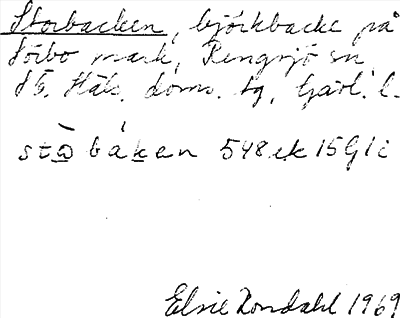 Storbacken, björkbacke på
Sörbo mark, Rengsjö sn
S. Häls. doms. tg, Gävl. l.
stɷ̀ báken 548 ek 15 G 1 i
Elsie Zondahl 1969